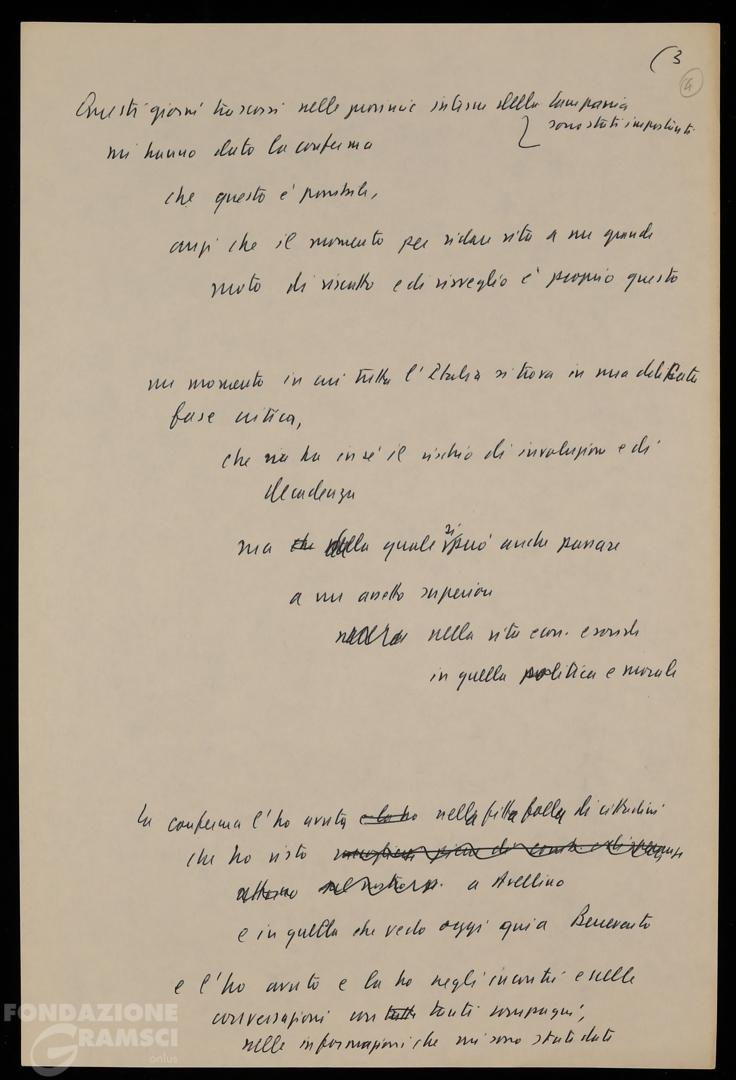 (3
4
Questi giorni trascorsi nelle provincie interne della Campania
sono stati importanti
mi hanno dato la conferma
che questo è possibile,
anzi che il momento per ridare vita a un grande
moto di riscatto e di risveglio è proprio questo
un momento in cui tutta l'Italia si trova in una delicata
fase critica,
che ha in sé il rischio di involuzione e di
decadenza
ma che dalla quale si può anche passare
a un assetto superiore
nella vita econ. e sociale
in quella politica e morale
La conferma l'ho avuta e la ho nella fitta folla di cittadini
che ho visto
attorno a Avellino
e in quella che vedo oggi qui a Benevento
e l'ho avuto e la ho negli incontri e nelle
conversazioni con tutti tanti compagni,
nelle informazioni che mi sono state date
FONDAZIONE
GRAMSCI
onlus